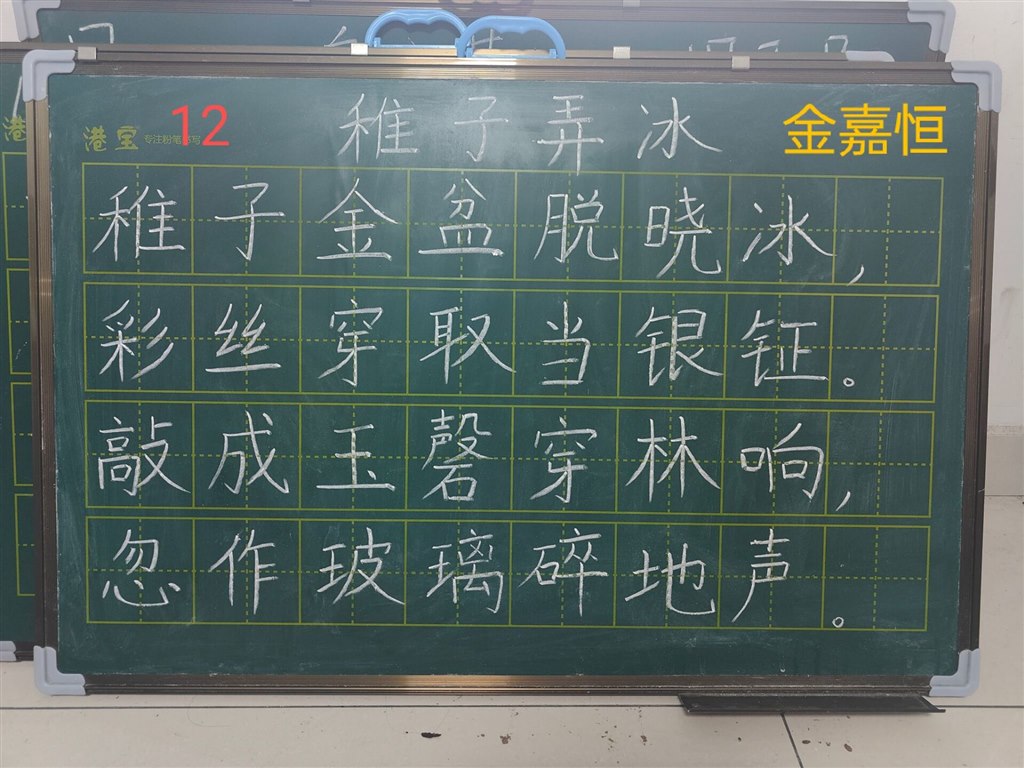 12
金嘉恒
港宝 专注粉笔书写
稚子弄冰
稚子金盆脱晓冰,
彩丝穿取当银钲。
敲成玉磬穿林响,
忽作玻璃碎地声。